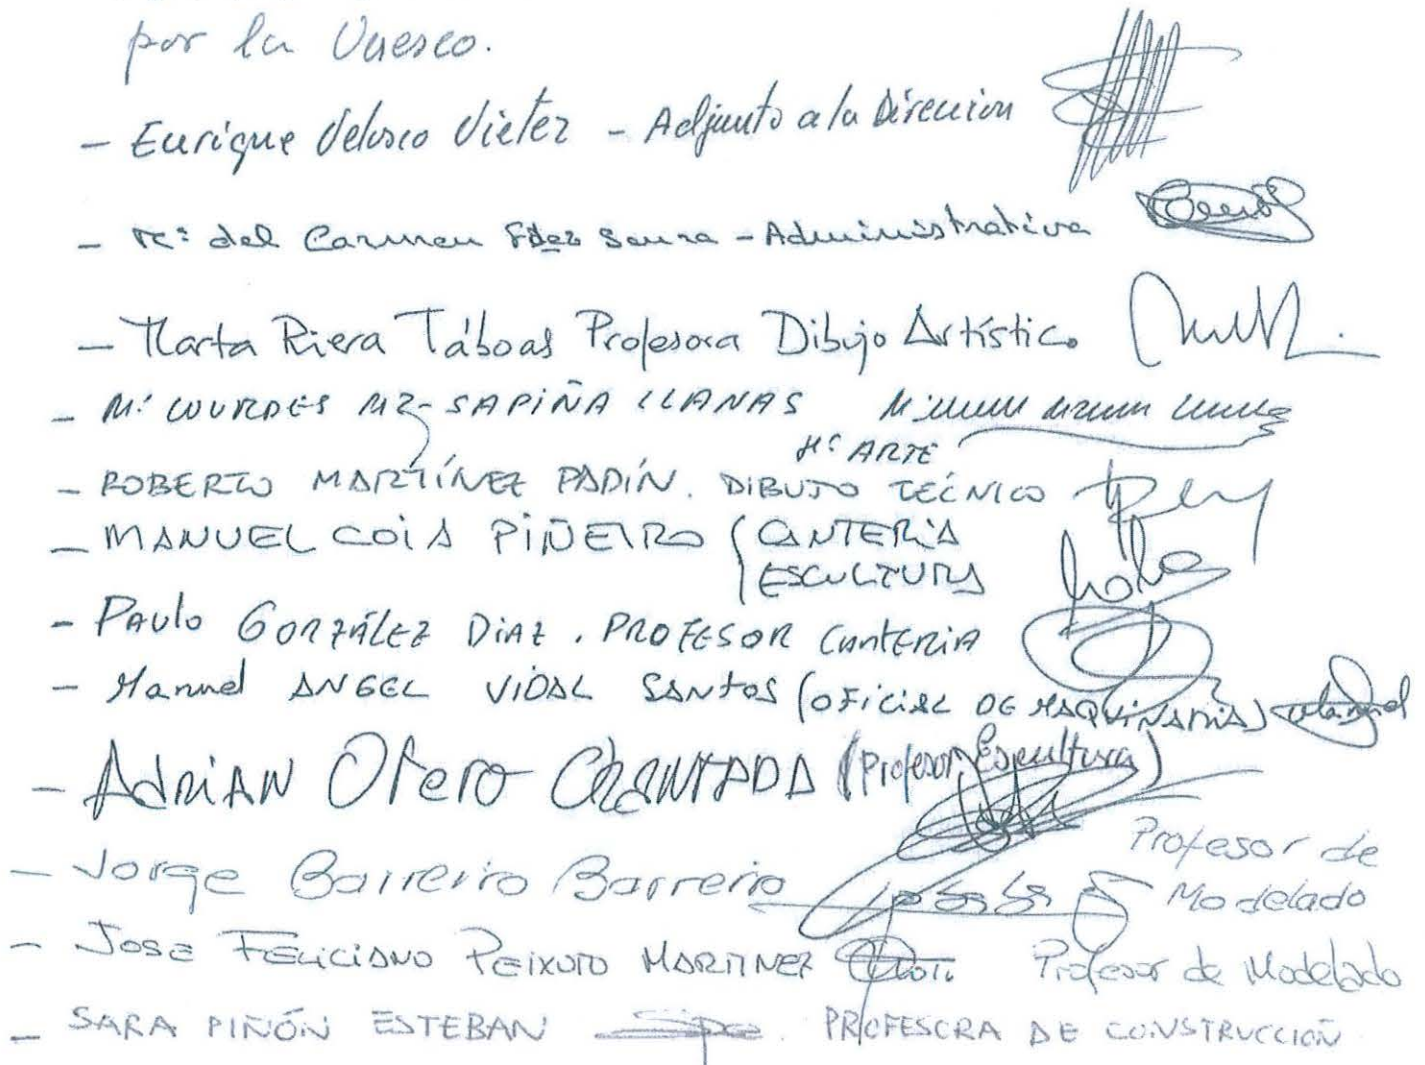 por la Unesco.
- Enrique Velasco Vieitez - Adjunto a la Direccion
- Mª del Carmen Fdez Saura - Administrativa
- Marta Riera Táboas Profesora Dibujo Artístico
- Mª LOURDES MZ-SAPIÑA LLANAS
Hª ARTE
- ROBERTO MARTÍNEZ PADÍN. DIBUJO TÉCNICO
- MANUEL COIA PIÑEIRO (CANTERIA
ESCULTURA
- PAULO GONZÁLEZ DIAZ. PROFESOR CANTERIA
- Manuel ANGEL VIDAL SANTOS (OFICIAL DE MAQUINARIA) Manuel
- ADRIAN OTERO CHANTADA (Profesor Escultura)
- Jorge Barreiro Barreiro Profesor de
Modelado
- JOSE FELICIANO PEIXOTO MARTINEZ Profesor de Modelado
- SARA PIÑÓN ESTEBAN PROFESORA DE CONSTRUCCIÓN